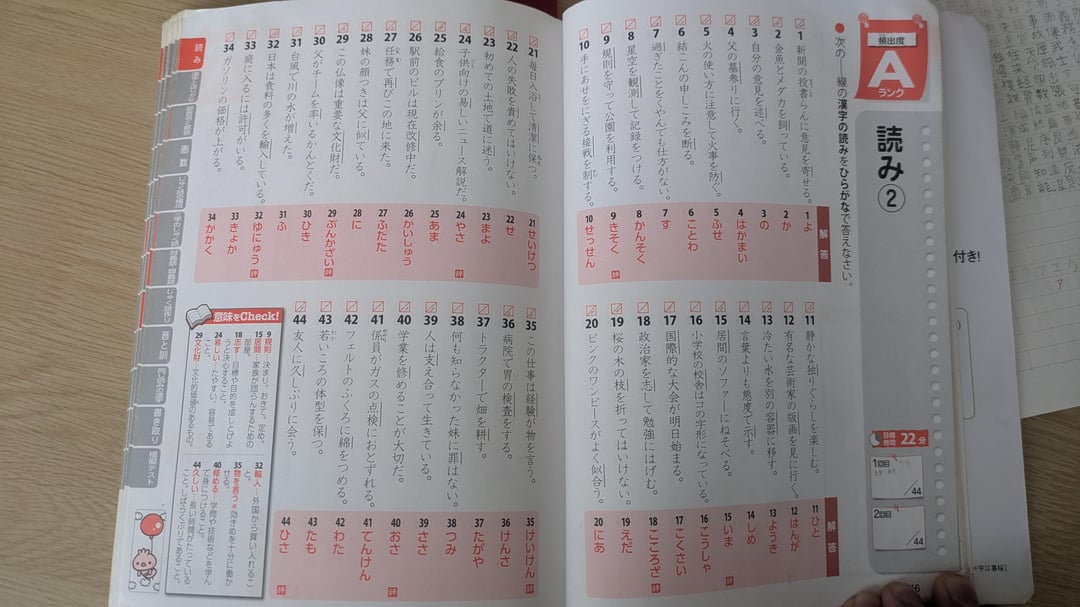 頻出度
A
ランク
読み②
● 次の——線の漢字の読みをひらがなで答えなさい。
1 新聞の投書らんに意見を寄せる。
2 金魚とメダカを飼っている。
3 自分の意見を述べる。
4 父の墓参りに行く。
5 火の使い方に注意して火事を防ぐ。
6 結こんの申しこみを断る。
7 過ぎたことをくやんでも仕方がない。
8 星空を観測して記録をつける。
9 規則を守って公園を利用する。
10 手にあせをにぎる接戦を制する。
解答
1 よ
2 か
3 の
4 はかまい
5 ふせ
6 ことわ
7 す
8 かんそく
9 きそく
10 せっせん
11 静かな独りぐらしを楽しむ。
12 有名な芸術家の版画を見に行く。
13 冷たい水を別の容器に移す。
14 言葉よりも態度で示す。
15 居間のソファーにねそべる。
16 小学校の校舎はコの字形になっている。
17 国際的な大会が明日始まる。
18 政治家を志して勉強にはげむ。
19 桜の木の枝を折ってはいけない。
20 ピンクのワンピースがよく似合う。
解答
11 ひと
12 はんが
13 ようき
14 しめ
15 いま
16 こうしゃ
17 こくさい
18 こころざ
19 えだ
20 にあ
目標時間 22分
1回目
/44
2回目
/44
21 毎日入浴して清潔に保つ。
22 人の失敗を責めてはいけない。
23 初めての土地で道に迷う。
24 子供向けの易しいニュース解説だ。
25 給食のプリンが余る。
26 駅前のビルは現在改修中だ。
27 任務で再びこの地に来た。
28 妹の顔つきは父に似ている。
29 この仏像は重要な文化財だ。
30 父がチームを率いるかんとくだ。
31 台風で川の水が増えた。
32 日本は食料の多くを輸入している。
33 庭に入るには許可がいる。
34 ガソリンの価格が上がる。
21 せいけつ
22 せ
23 まよ
24 やさ
25 あま
26 かいしゅう
27 ふたた
28 に
29 ぶんかざい
30 ひき
31 ふ
32 ゆにゅう
33 きょか
34 かかく
35 この仕事は経験が物を言う。
36 病院で胃の検査をする。
37 トラクターで畑を耕す。
38 何も知らなかった妹に罪はない。
39 人は支え合って生きている。
40 学業を修めることが大切だ。
41 係員がガスの点検におとずれる。
42 フェルトのふくろに綿をつめる。
43 若いころの体型を保つ。
44 友人に久しぶりに会う。
35 けいけん
36 けんさ
37 たがや
38 つみ
39 ささ
40 おさ
41 てんけん
42 わた
43 たも
44 ひさ
意味をCheck!
9 規則…決まり。おきて。定め。
15 居間…家族が団らんするための部屋。
18 志す…目標や目的を成しとげようと決心すること。
24 易しい…たやすい。容易であること。
29 文化財…文化的価値のあるもの。
32 輸入…外国から買い入れること。
35 物を言う…効きめを十分に働かせる。
40 修める…学問や技術などを学んで身につけること。
44 久しい…長い時間がたっていること。しばらくぶりであること。
読み
画数
音と訓
書き取り
模擬テスト
付き!